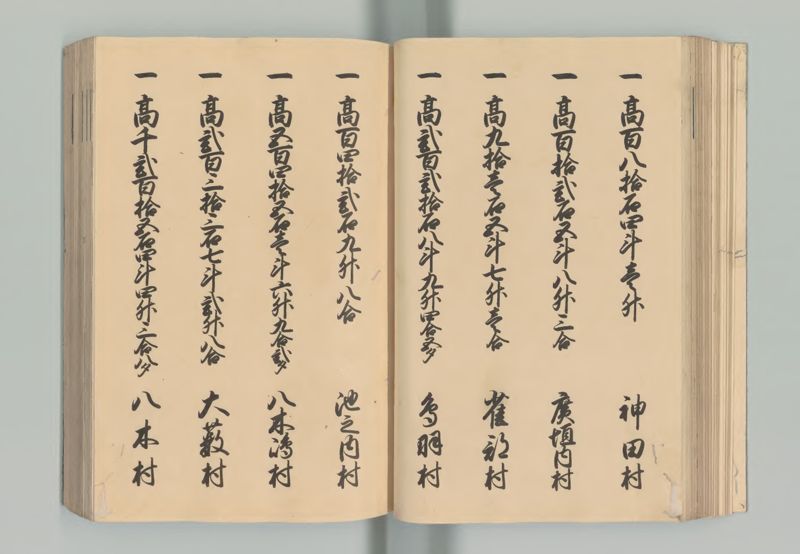 一 高百八拾石四斗壱升 神田村
一 高百拾弐石五斗八升三合 廣垣内村
一 高九拾壱石五斗七升壱合 雀部村
一 高弐百弐拾石八斗九升四合五夕 鳥羽村
一 高百四拾弐石九升八合 池之内村
一 高五百四拾五石壱斗六升九合弐夕 八木嶋村
一 高弐百三拾三石七斗弐升八合 大藪村
一 高千弐百拾五石四斗四升三合八夕 八木村